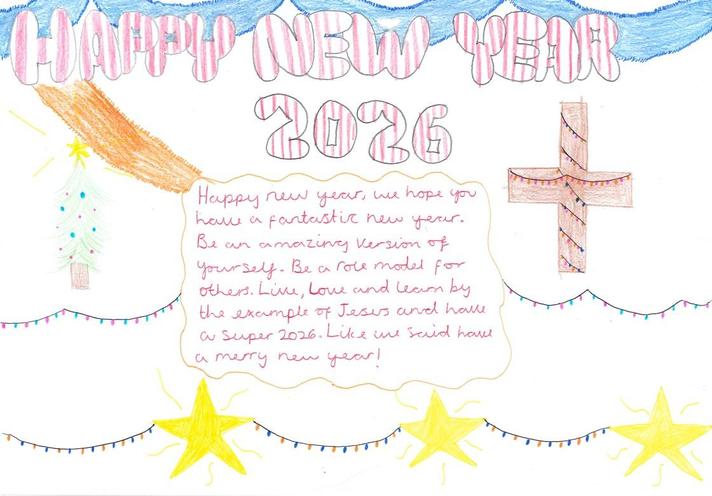 HAPPY NEW YEAR
2026
Happy new year, we hope you
have a fantastic new year.
Be an amazing version of
yourself. Be a role model for
others. Live, Love and learn by
the example of Jesus and have
a super 2026. Like we said have
a merry new year!